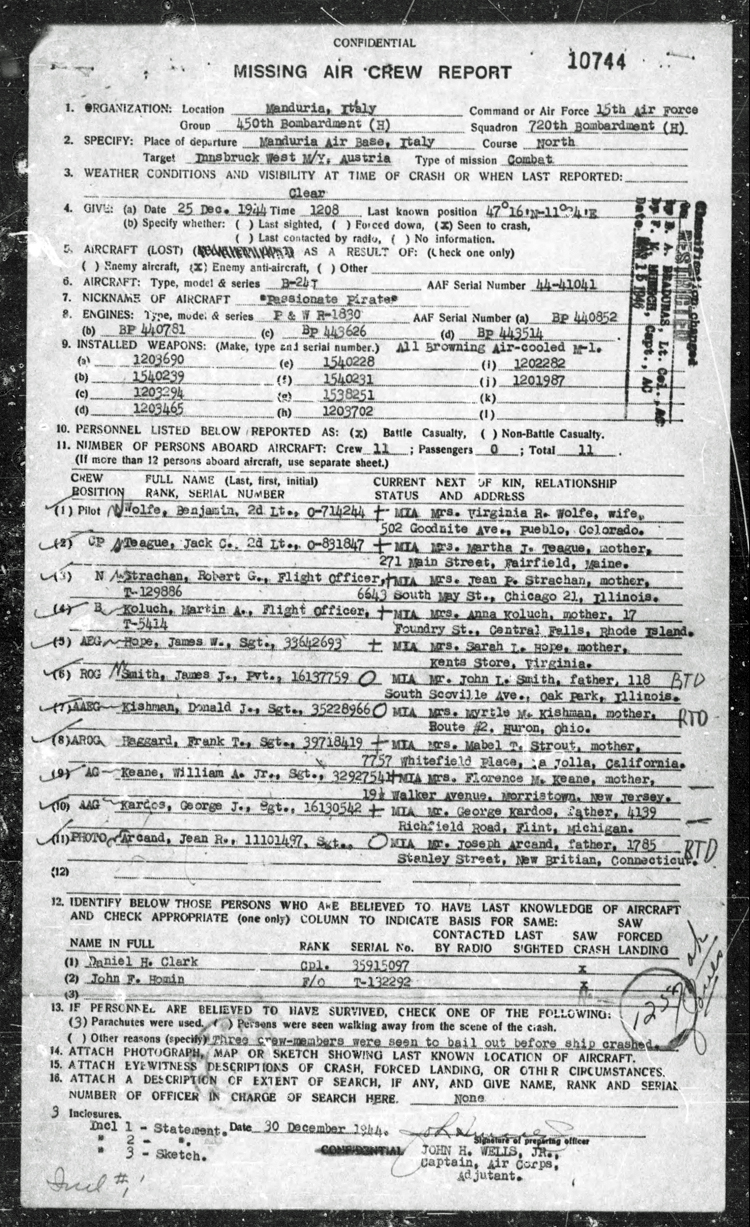 CONFIDENTIAL
MISSING AIR CREW REPORT
10744
1. ORGANIZATION: Location Manduria, Italy Command or Air Force 15th Air Force
Group 450th Bombardment (H) Squadron 720th Bombardment (H)
2. SPECIFY: Place of departure Manduria Air Base, Italy Course North
Target Innsbruck West M/Y, Austria Type of mission Combat
3. WEATHER CONDITIONS AND VISIBILITY AT TIME OF CRASH OR WHEN LAST REPORTED:
Clear
4. GIVE: (a) Date 25 Dec. 1944 Time 1208 Last known position 47°16'N-11° 'E
(b) Specify whether: ( ) Last sighted, ( ) Forced down, (X) Seen to crash,
( ) Last contacted by radio, ( ) No information.
5. AIRCRAFT (LOST) AS A RESULT OF: (Check one only)
( ) Enemy aircraft, (X) Enemy anti-aircraft, ( ) Other
6. AIRCRAFT: Type, model & series B-24 AAF Serial Number 44-41041
7. NICKNAME OF AIRCRAFT "Passionate Pirate"
8. ENGINES: Type, model & series P & W R-1830 AAF Serial Number (a) BP 440852
(b) BP 440781 (c) BP 443626 (d) BP 443514
9. INSTALLED WEAPONS: (Make, type and serial number.) All Browning Air-cooled M-1.
(a) 1203690 (e) 1540228 (i) 1202282
(b) 1540239 (f) 1540231 (j) 1201987
(c) 1203294 (g) 1538251 (k)
(d) 1203465 (h) 1203702 (l)
Classification changed
to RESTRICTED
by E. A. BRADUNAS, Lt. Col., AC
by F. M. , Capt., AC
Date 15 1946
10. PERSONNEL LISTED BELOW REPORTED AS: (X) Battle Casualty, ( ) Non-Battle Casualty.
11. NUMBER OF PERSONS ABOARD AIRCRAFT: Crew 11 ; Passengers 0 ; Total 11 .
(If more than 12 persons aboard aircraft, use separate sheet.)
CREW FULL NAME (Last, first, initial) CURRENT NEXT OF KIN, RELATIONSHIP
POSITION RANK, SERIAL NUMBER STATUS AND ADDRESS
(1) Pilot Wolfe, Benjamin, 2d Lt., O-714244 + MIA Mrs. Virginia R. Wolfe, wife,
502 Goodnite Ave., Pueblo, Colorado.
(2) CP Teague, Jack C., 2d Lt., O-831847 + MIA Mrs. Martha J. Teague, mother,
271 Main Street, Fairfield, Maine.
(3) N Strachan, Robert G., Flight Officer, + MIA Mrs. Jean P. Strachan, mother,
T-129886 6643 South May St., Chicago 21, Illinois.
(4) B Koluch, Martin A., Flight Officer, + MIA Mrs. Anna Koluch, mother, 17
T-5414 Foundry St., Central Falls, Rhode Island.
(5) AEG Hope, James W., Sgt., 33642693 + MIA Mrs. Sarah L. Hope, mother,
Kents Store, Virginia.
(6) ROG Smith, James J., Pvt., 16137759 O MIA Mr. John L. Smith, father, 118 RTD
South Scoville Ave., Oak Park, Illinois.
(7) AAEG Kishman, Donald J., Sgt., 35228966 O MIA Mrs. Myrtle M. Kishman, mother, RTD
Route #2, Huron, Ohio.
(8) AROG Haggard, Frank T., Sgt., 39718419 + MIA Mrs. Mabel T. Strout, mother,
7757 Whitefield Place, La Jolla, California.
(9) AG Keane, William A. Jr., Sgt., 32927541 + MIA Mrs. Florence M. Keane, mother,
19½ Walker Avenue, Morristown, New Jersey.
(10) AAG Kardos, George J., Sgt., 16130542 + MIA Mr. George Kardos, father, 4139
Richfield Road, Flint, Michigan.
(11) PHOTO Arcand, Jean R., 11101497, Sgt., O MIA Mr. Joseph Arcand, father, 1785 RTD
Stanley Street, New Britian, Connecticut.
(12)
12. IDENTIFY BELOW THOSE PERSONS WHO ARE BELIEVED TO HAVE LAST KNOWLEDGE OF AIRCRAFT
AND CHECK APPROPRIATE (one only) COLUMN TO INDICATE BASIS FOR SAME: SAW
CONTACTED LAST SAW FORCED
NAME IN FULL RANK SERIAL No. BY RADIO SIGHTED CRASH LANDING
(1) Daniel H. Clark Cpl. 35915097 X
(2) John F. Homin F/O T-132292 X
(3)
1257
13. IF PERSONNEL ARE BELIEVED TO HAVE SURVIVED, CHECK ONE OF THE FOLLOWING:
(3) Parachutes were used, ( ) Persons were seen walking away from the scene of the crash.
( ) Other reasons (specify) Three crew-members were seen to bail out before ship crashed.
14. ATTACH PHOTOGRAPH, MAP OR SKETCH SHOWING LAST KNOWN LOCATION OF AIRCRAFT.
15. ATTACH EYEWITNESS DESCRIPTIONS OF CRASH, FORCED LANDING, OR OTHER CIRCUMSTANCES.
16. ATTACH A DESCRIPTION OF EXTENT OF SEARCH, IF ANY, AND GIVE NAME, RANK AND SERIAL
NUMBER OF OFFICER IN CHARGE OF SEARCH HERE. None
3 Inclosures.
Incl 1 - Statement. Date 30 December 1944.
" 2 - ".
" 3 - Sketch.
Signature of preparing officer
CONFIDENTIAL
JOHN H. WELLS, JR.,
Captain, Air Corps,
Adjutant.
Incl #1